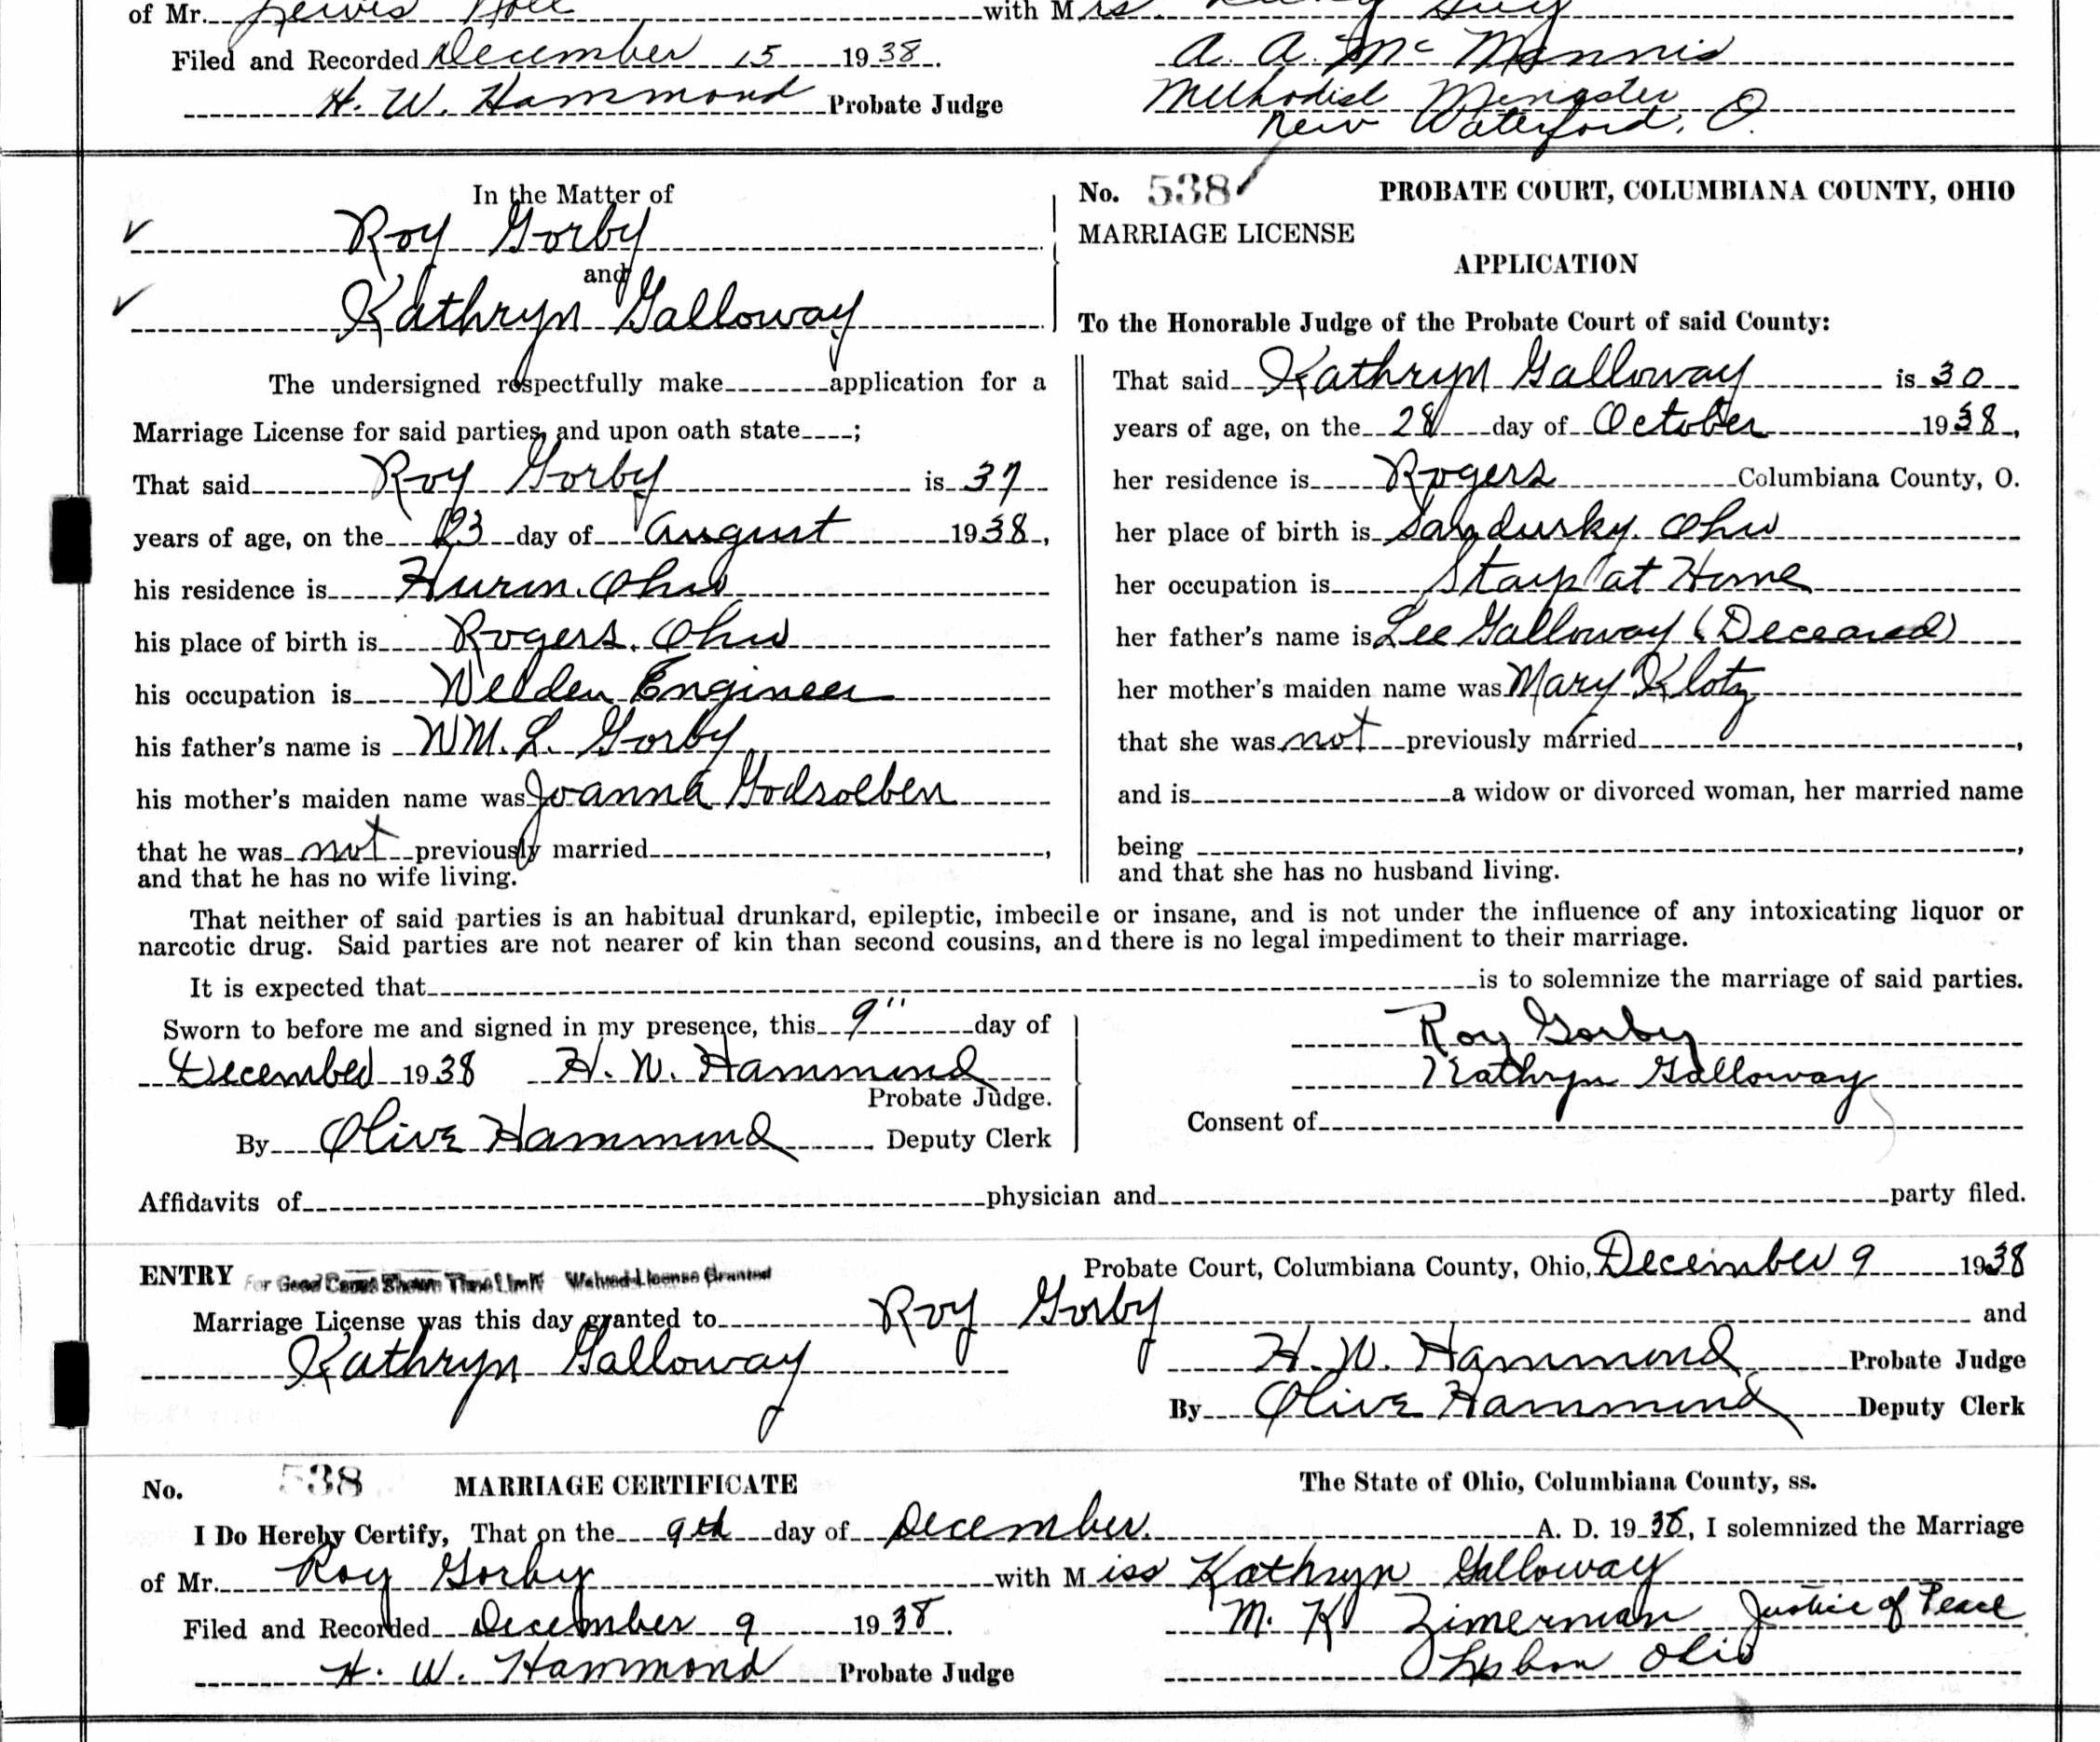 of Mr. Lewis with Mrs. Guy
Filed and Recorded December 15 1938.
A. A. Mc Mannis
H. W. Hammond Probate Judge
Methodist Mingster
New Waterford, O.
In the Matter of
Roy Gorby
and
Kathryn Galloway
The undersigned respectfully make application for a
Marriage License for said parties, and upon oath state ;
That said Roy Gorby is 37
years of age, on the 23 day of August 1938,
his residence is Huron, Ohio
his place of birth is Rogers, Ohio
his occupation is Welden Engineer
his father's name is WM. L. Gorby
his mother's maiden name was Joanna
that he was not previously married ,
and that he has no wife living.
No. 538 PROBATE COURT, COLUMBIANA COUNTY, OHIO
MARRIAGE LICENSE
APPLICATION
To the Honorable Judge of the Probate Court of said County:
That said Kathryn Galloway is 30
years of age, on the 28 day of October 1938,
her residence is Rogers Columbiana County, O.
her place of birth is Sandusky, Ohio
her occupation is Stays at Home
her father's name is Lee Galloway (Deceased)
her mother's maiden name was Mary Klotz
that she was not previously married ,
and is a widow or divorced woman, her married name
being ,
and that she has no husband living.
That neither of said parties is an habitual drunkard, epileptic, imbecile or insane, and is not under the influence of any intoxicating liquor or
narcotic drug. Said parties are not nearer of kin than second cousins, and there is no legal impediment to their marriage.
It is expected that is to solemnize the marriage of said parties.
Sworn to before me and signed in my presence, this 9" day of
December 1938 H. W. Hammond
Probate Judge.
By Olive Hammond Deputy Clerk
Roy Gorby
Kathryn Galloway
Consent of
Affidavits of physician and party filed.
ENTRY For Good Cause Shown Time Limit Waived License Granted
Probate Court, Columbiana County, Ohio, December 9 1938
Marriage License was this day granted to Roy Gorby and
Kathryn Galloway
H. W. Hammond Probate Judge
By Olive Hammond Deputy Clerk
No. 538 MARRIAGE CERTIFICATE The State of Ohio, Columbiana County, ss.
I Do Hereby Certify, That on the 9th day of December. A. D. 1938, I solemnized the Marriage
of Mr. Roy Gorby with Miss Kathryn Galloway
Filed and Recorded December 9 1938.
M. K. Zimerman Justice of Peace
H. W. Hammond Probate Judge
Lisbon Ohio